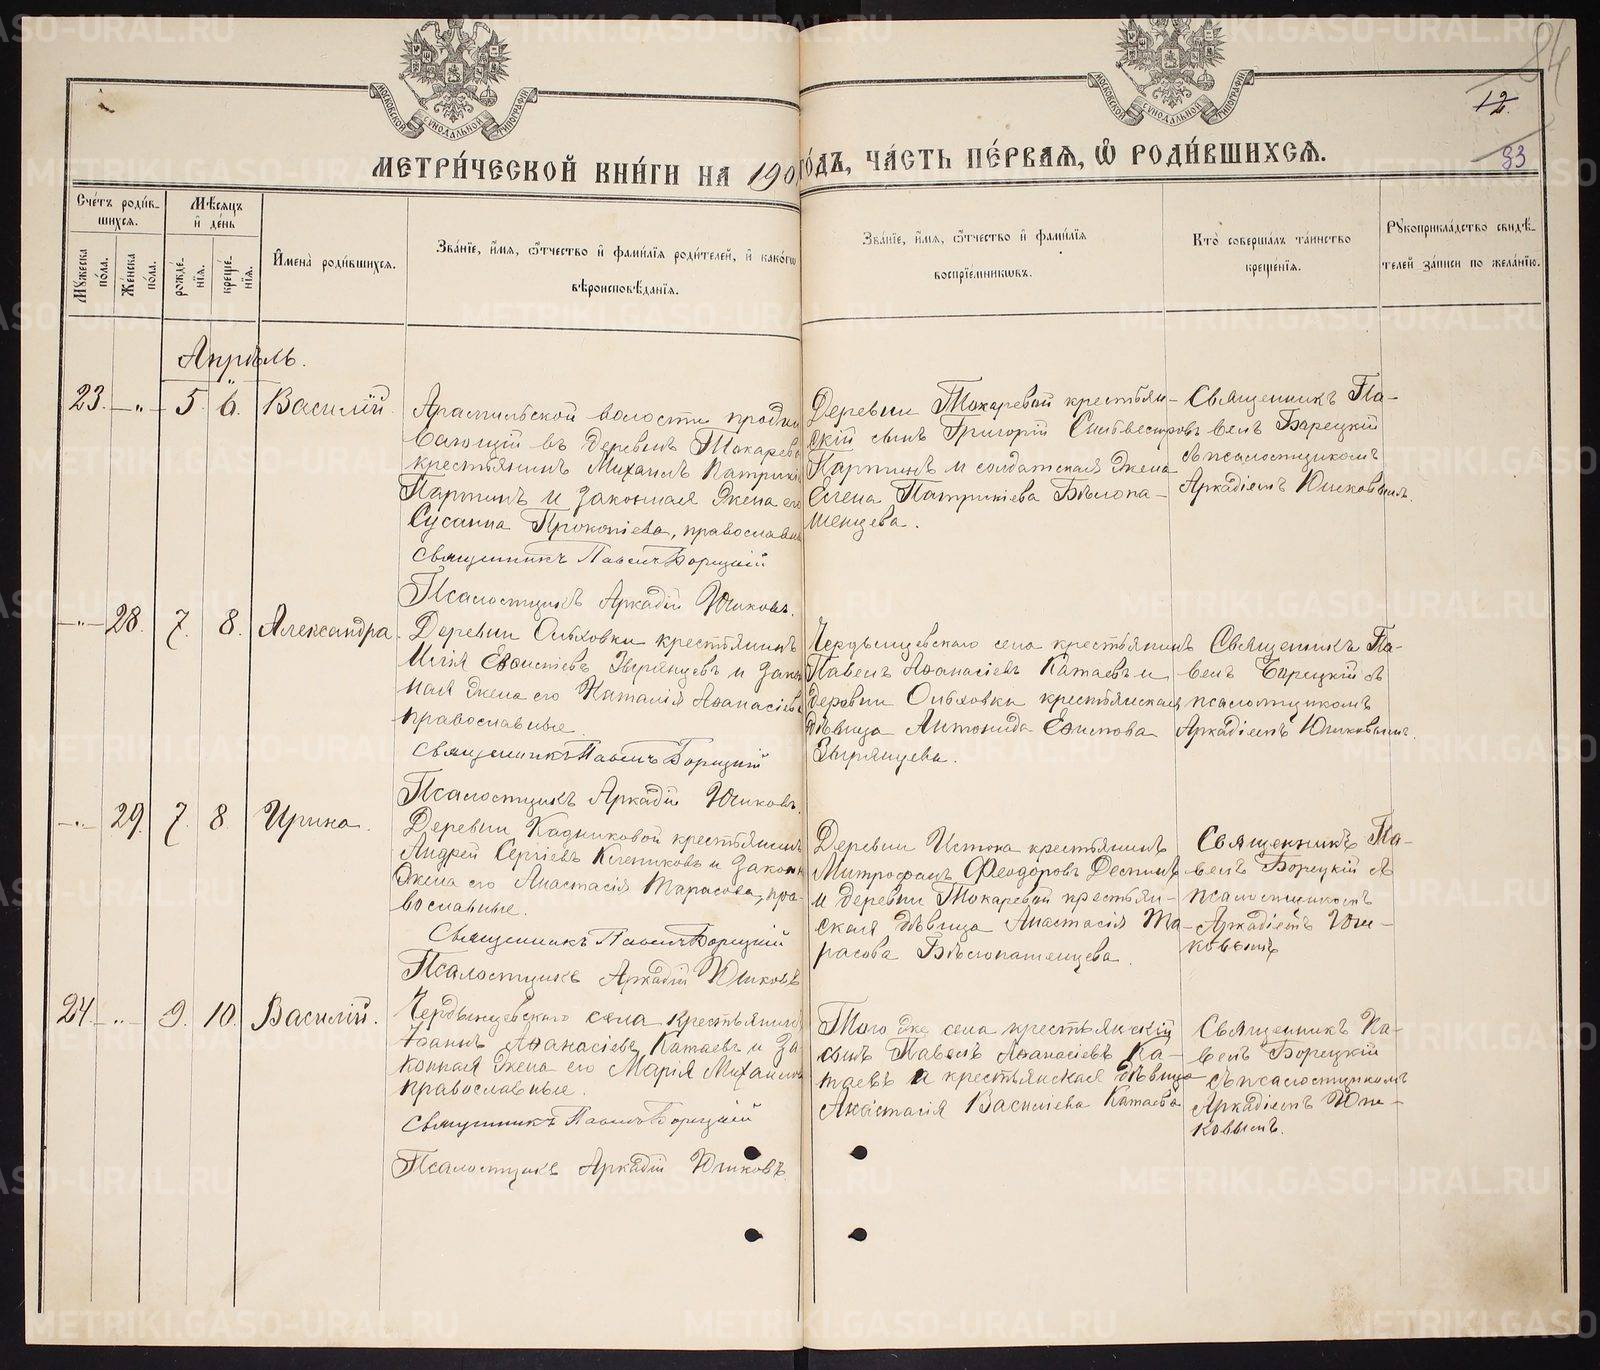 84
12
83
МОСКОВСКОЙ СѴНОДАЛЬНОЙ ТИПОГРАФІИ
МОСКОВСКОЙ СѴНОДАЛЬНОЙ ТИПОГРАФІИ
МЕТРИ́ЧЕСКОЙ КНИ́ГИ НА 190 ГО́ДЪ, ЧА́СТЬ ПЕ́РВАѦ, Ѡ РОДИ́ВШИХСѦ.
Сче́тъ роди́в-
шихсѧ.
Мꙋ́жеска
по́ла.
Же́нска
по́ла.
Мѣ́сѧцъ
и҆ де́нь
рожде́-
нїѧ.
креще́-
нїѧ.
И҆мена̀ роди́вшихсѧ.
Зва́нїе, и҆́мѧ, ѻ҆́тчество и҆ фами́лїѧ роди́телей, и҆ како́гѡ
вѣроисповѣ́данїѧ.
Зва́нїе, и҆́мѧ, ѻ҆́тчество и҆ фами́лїѧ
воспрїе́мникѡвъ.
Кто̀ соверша́лъ та́инство
креще́нїѧ.
Рꙋкоприкла́дство свидѣ́-
телей за́писи по жела́нїю.
Апрѣль.
23. - „ - 5. 6. Василій.
Арамильской волости прожи
вающій въ деревнѣ Токарево
крестьянинъ Михаилъ Патрикі
Партинъ и законная жена его
Сусанна Прокопіева, православн
Священникъ Павелъ Борецкій
Псаломщикъ Аркадій Юшковъ.
Деревни Токаревой крестьян-
скій сынъ Григорій Сильвестровъ
Партинъ и солдатская жена
Елена Патрикіева Бѣлопа-
шенцева.
Священникъ Па-
велъ Борецкій
съ псаломщикомъ
Аркадіемъ Юшковымъ.
- „ - 28. 7. 8. Александра.
Деревни Ольховки крестьянинъ
Илія Евѳиміевъ Зырянцевъ и закон
ная жена его Наталія Аѳанасіева
православные.
Священникъ Павелъ Борецкій
Псаломщикъ Аркадій Юшковъ.
Чердынцевскаго села крестьянинъ
Павелъ Аѳанасіевъ Катаевъ и
деревни Ольховки крестьянская
дѣвица Антонида Еѳимова
Зырянцева.
Священникъ Па-
велъ Борецкій съ
псаломщикомъ
Аркадіемъ Юшковымъ.
- „ - 29. 7. 8. Ирина.
Деревни Кадниковой крестьянинъ
Андрей Сергіевъ Клепиковъ и законн
жена его Анастасія Тарасова, пра-
вославные.
Священникъ Павелъ Борецкій
Псаломщикъ Аркадій Юшковъ
Деревни Истока крестьянинъ
Митрофанъ Ѳеодоровъ Деспинъ
и деревни Токаревой крестьян-
ская дѣвица Анастасія Та-
расова Бѣлопашенцева.
Священникъ Па-
велъ Борецкій съ
псаломщикомъ
Аркадіемъ Юш-
ковымъ
24. - „ - 9. 10. Василій.
Чердынцевскаго села крестьянинъ
Іоаннъ Аѳанасіевъ Катаевъ и за
конная жена его Марія Михаилова
православные.
Священникъ Павелъ Борецкій
Псаломщикъ Аркадій Юшковъ.
Того же села крестьянскій
сынъ Павелъ Аѳанасіевъ Ка-
таевъ и крестьянская дѣвица
Анастасія Василіева Катаева
Священникъ Па-
велъ Борецкій
съ псаломщикомъ
Аркадіемъ Юш-
ковымъ.
METRIKI.GASO-URAL.RU